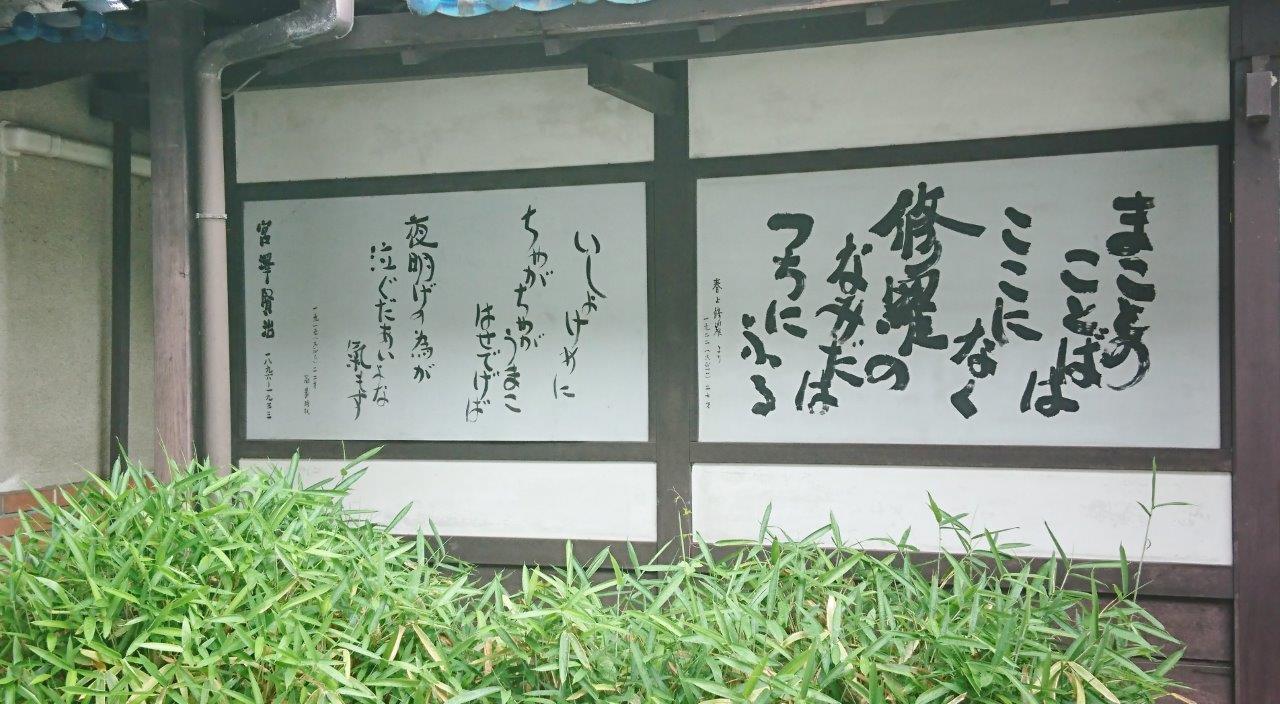 まことの
ことばは
ここに
なく
修羅の
なみだは
つちに
ふる
春と修羅 より
いしょけめに
ちゃがちゃがうまこ
はせでげば
夜明げの為が
泣ぐだあいよな
氣もす
宮澤賢治 一八九六〜一九三三